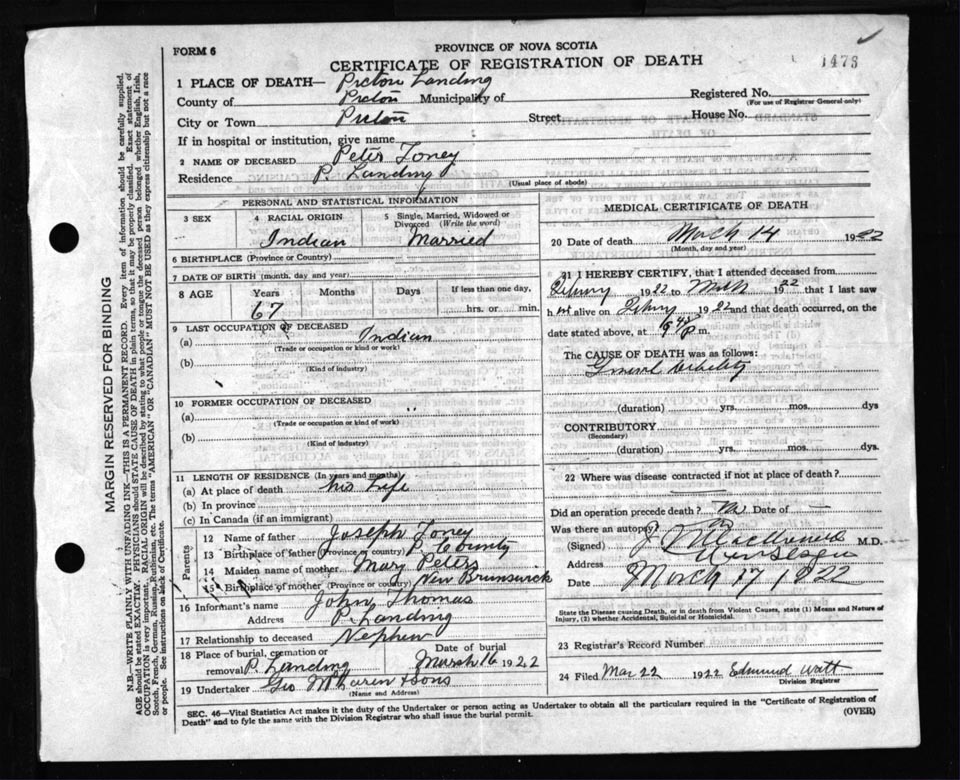 FORM 6
PROVINCE OF NOVA SCOTIA
CERTIFICATE OF REGISTRATION OF DEATH
1473
1 PLACE OF DEATH— Pictou Landing
County of Pictou Municipality of
Registered No.
(For use of Registrar General only)
City or Town Pictou Street House No.
If in hospital or institution, give name
2 NAME OF DECEASED Peter Toney
Residence P. Landing
(Usual place of abode)
PERSONAL AND STATISTICAL INFORMATION
3 SEX
4 RACIAL ORIGIN
Indian
5 Single, Married, Widowed or Divorced (Write the word)
Married
6 BIRTHPLACE (Province or Country)
7 DATE OF BIRTH (month, day and year)
8 AGE Years Months Days If less than one day,
67 hrs. or min.
9 LAST OCCUPATION OF DECEASED
(a) Indian
(Trade or occupation or kind or work)
(b)
(Kind of industry)
10 FORMER OCCUPATION OF DECEASED
(a) "
(Trade or occupation or kind of work)
(b)
(Kind of industry)
11 LENGTH OF RESIDENCE (In years and months)
(a) At place of death his Life
(b) In province
(c) In Canada (if an immigrant)
Parents
12 Name of father Joseph Toney
13 Birthplace of father (Province or country) P. County
14 Maiden name of mother Mary Peters
15 Birthplace of mother (Province or country) New Brunswick
16 Informant's name John Thomas
Address P. Landing
17 Relationship to deceased Nephew
18 Place of burial, cremation or removal P. Landing
Date of burial
March 16 1922
19 Undertaker Geo McLaren & Sons
(Name and Address)
MEDICAL CERTIFICATE OF DEATH
20 Date of death March 14 1922
(Month, day and year)
21 I HEREBY CERTIFY, that I attended deceased from
1922 to March 1922 that I last saw
h im alive on 1922 and that death occurred, on the
date stated above, at m.
The CAUSE OF DEATH was as follows:
General debility
(duration) yrs. mos. dys
CONTRIBUTORY
(Secondary)
(duration) yrs. mos. dys
22 Where was disease contracted if not at place of death?
Did an operation precede death? No Date of —
Was there an autopsy? no
(Signed) J MacDonald M.D.
Address
Date March 17 1922
State the Disease causing Death, or in death from Violent Causes, state (1) Means and Nature of
Injury, (2) whether Accidental, Suicidal or Homicidal.
23 Registrar's Record Number
24 Filed Mar 22 1922 Edmund Watt
Division Registrar
SEC. 46—Vital Statistics Act makes it the duty of the Undertaker or person acting as Undertaker to obtain all the particulars required in the "Certificate of Registration of
Death" and to fyle the same with the Division Registrar who shall issue the burial permit.
(OVER)
MARGIN RESERVED FOR BINDING
N.B.—WRITE PLAINLY WITH UNFADING INK—THIS IS A PERMANENT RECORD. Every item of information should be carefully supplied.
AGE should be stated EXACTLY. PHYSICIANS should STATE CAUSE OF DEATH in plain terms, so that it may be properly classified. Exact statement of
OCCUPATION is very important. RACIAL ORIGIN will be described by stating to what people or tongue the deceased person belonged whether English, Irish,
Scotch, French, German, Russian, Ruthenian, etc. The terms "AMERICAN" OR "CANADIAN" MUST NOT BE USED as they express citizenship but not a race
or people. See instructions on back of Certificate.